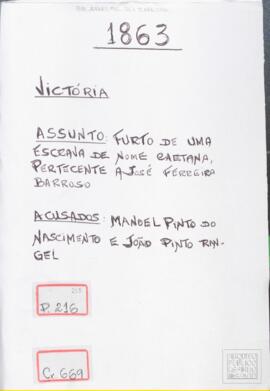 1863
VICTÓRIA
ASSUNTO: FURTO DE UMA
ESCRAVA DE NOME CAETANA,
PERTECENTE A JOSÉ FERREIRA
BARROSO
ACUSADOS: MANOEL PINTO DO
NASCIMENTO E JOÃO PINTO RAN-
GEL
P. 216
Cr. 669